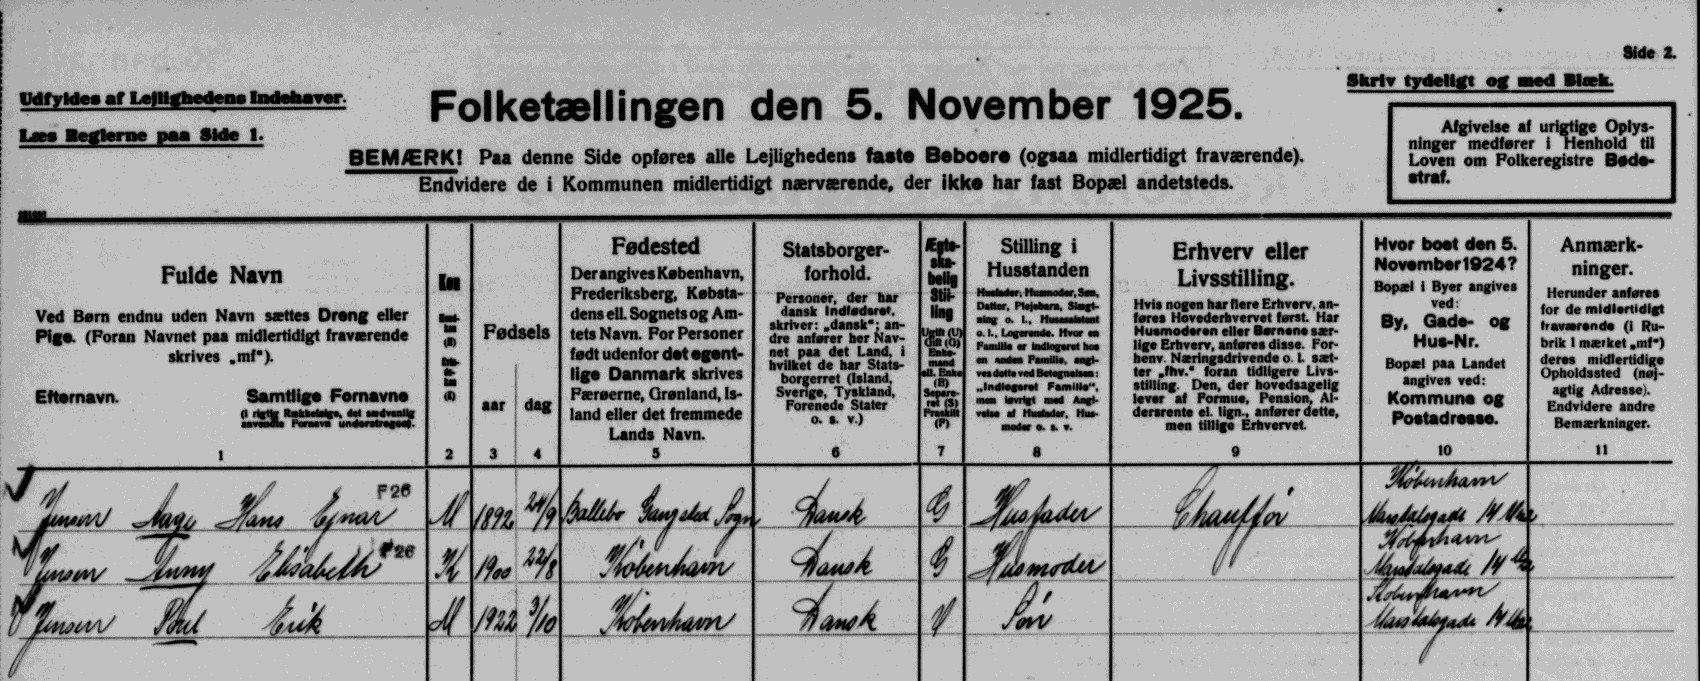 Side 2.
Udfyldes af Lejlighedens Indehaver.
Læs Reglerne paa Side 1.
Folketællingen den 5. November 1925.
Skriv tydeligt og med Blæk.
Afgivelse af urigtige Oplys-
ninger medfører i Henhold til
Loven om Folkeregistre Bøde-
straf.
BEMÆRK! Paa denne Side opføres alle Lejlighedens faste Beboere (ogsaa midlertidigt fraværende).
Endvidere de i Kommunen midlertidigt nærværende, der ikke har fast Bopæl andetsteds.
Fulde Navn
Ved Børn endnu uden Navn sættes Dreng eller
Pige. (Foran Navnet paa midlertidigt fraværende
skrives „mf").
Efternavn. Samtlige Fornavne
(i rigtig Rækkefølge, det sædvanlig
anvendte Fornavn understreges).
1
Køn
2
Fødsels
aar dag
3 4
Fødested
Der angives København,
Frederiksberg, Købsta-
dens ell. Sognets og Am-
tets Navn. For Personer
født udenfor det egent-
lige Danmark skrives
Færøerne, Grønland, Is-
land eller det fremmede
Lands Navn.
5
Statsborger-
forhold.
Personer, der har
dansk Indfødsret,
skriver: „dansk"; an-
dre anfører her Nav-
net paa det Land, i
hvilket de har Stats-
borgerret (Island,
Sverige, Tyskland,
Forenede Stater
o. s. v.)
6
Ægte-
ska-
belig
Stil-
ling
Ugift (U)
Gift (G)
Enke-
mand
ell. Enke
(E)
Separe-
ret (S)
Fraskilt
(F)
7
Stilling i
Husstanden
Husfader, Husmoder, Søn,
Datter, Plejebarn, Slægt-
ning o. l., Husassistent
o. l., Logerende. Hvor en
Familie er indlogeret hos
en anden Familie, angi-
ves dette ved Betegnelsen:
„Indlogeret Familie",
men iøvrigt med Angi-
velse af Husfader, Hus-
moder o. s. v.
8
Erhverv eller
Livsstilling.
Hvis nogen har flere Erhverv, an-
føres Hovederhvervet først. Har
Husmoderen eller Børnene sær-
lige Erhverv, anføres disse. For-
henv. Næringsdrivende o. l. sæt-
ter „fhv." foran tidligere Livs-
stilling. Den, der hovedsagelig
lever af Formue, Pension, Al-
dersrente el. lign., anfører dette,
men tillige Erhvervet.
9
Hvor boet den 5.
November 1924?
Bopæl i Byer angives
ved:
By, Gade- og
Hus-Nr.
Bopæl paa Landet
angives ved:
Kommune og
Postadresse.
10
Anmærk-
ninger.
Herunder anføres
for de midlertidigt
fraværende (i Ru-
brik 1 mærket „mf")
deres midlertidige
Opholdssted (nøj-
agtig Adresse).
Endvidere andre
Bemærkninger.
11
Jensen Aage Hans Ejnar F26 M 1892 24/9 Ballebo Gangsted Sogn Dansk G Husfader Chauffør København
Marstalsgade 14
Jensen Anny Elisabeth F26 K 1900 22/8 København Dansk G Husmoder København
Marstalsgade 14
Jensen Poul Erik M 1922 3/10 København Dansk U Søn København
Marstalsgade 14